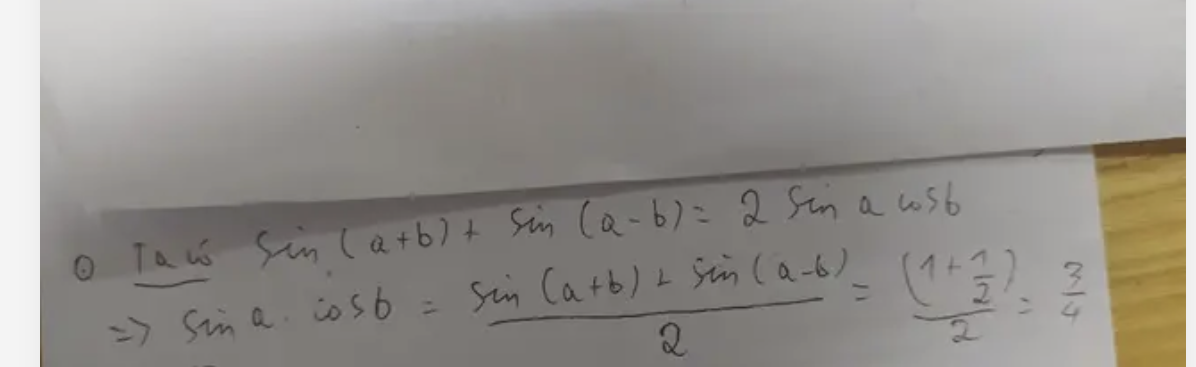 Ta có sin(a+b) + sin(a-b) = 2 sin a cosb
=> sin a. cosb = (sin(a+b) + sin(a-b))/2 = (1+1/2)/2 = 3/4